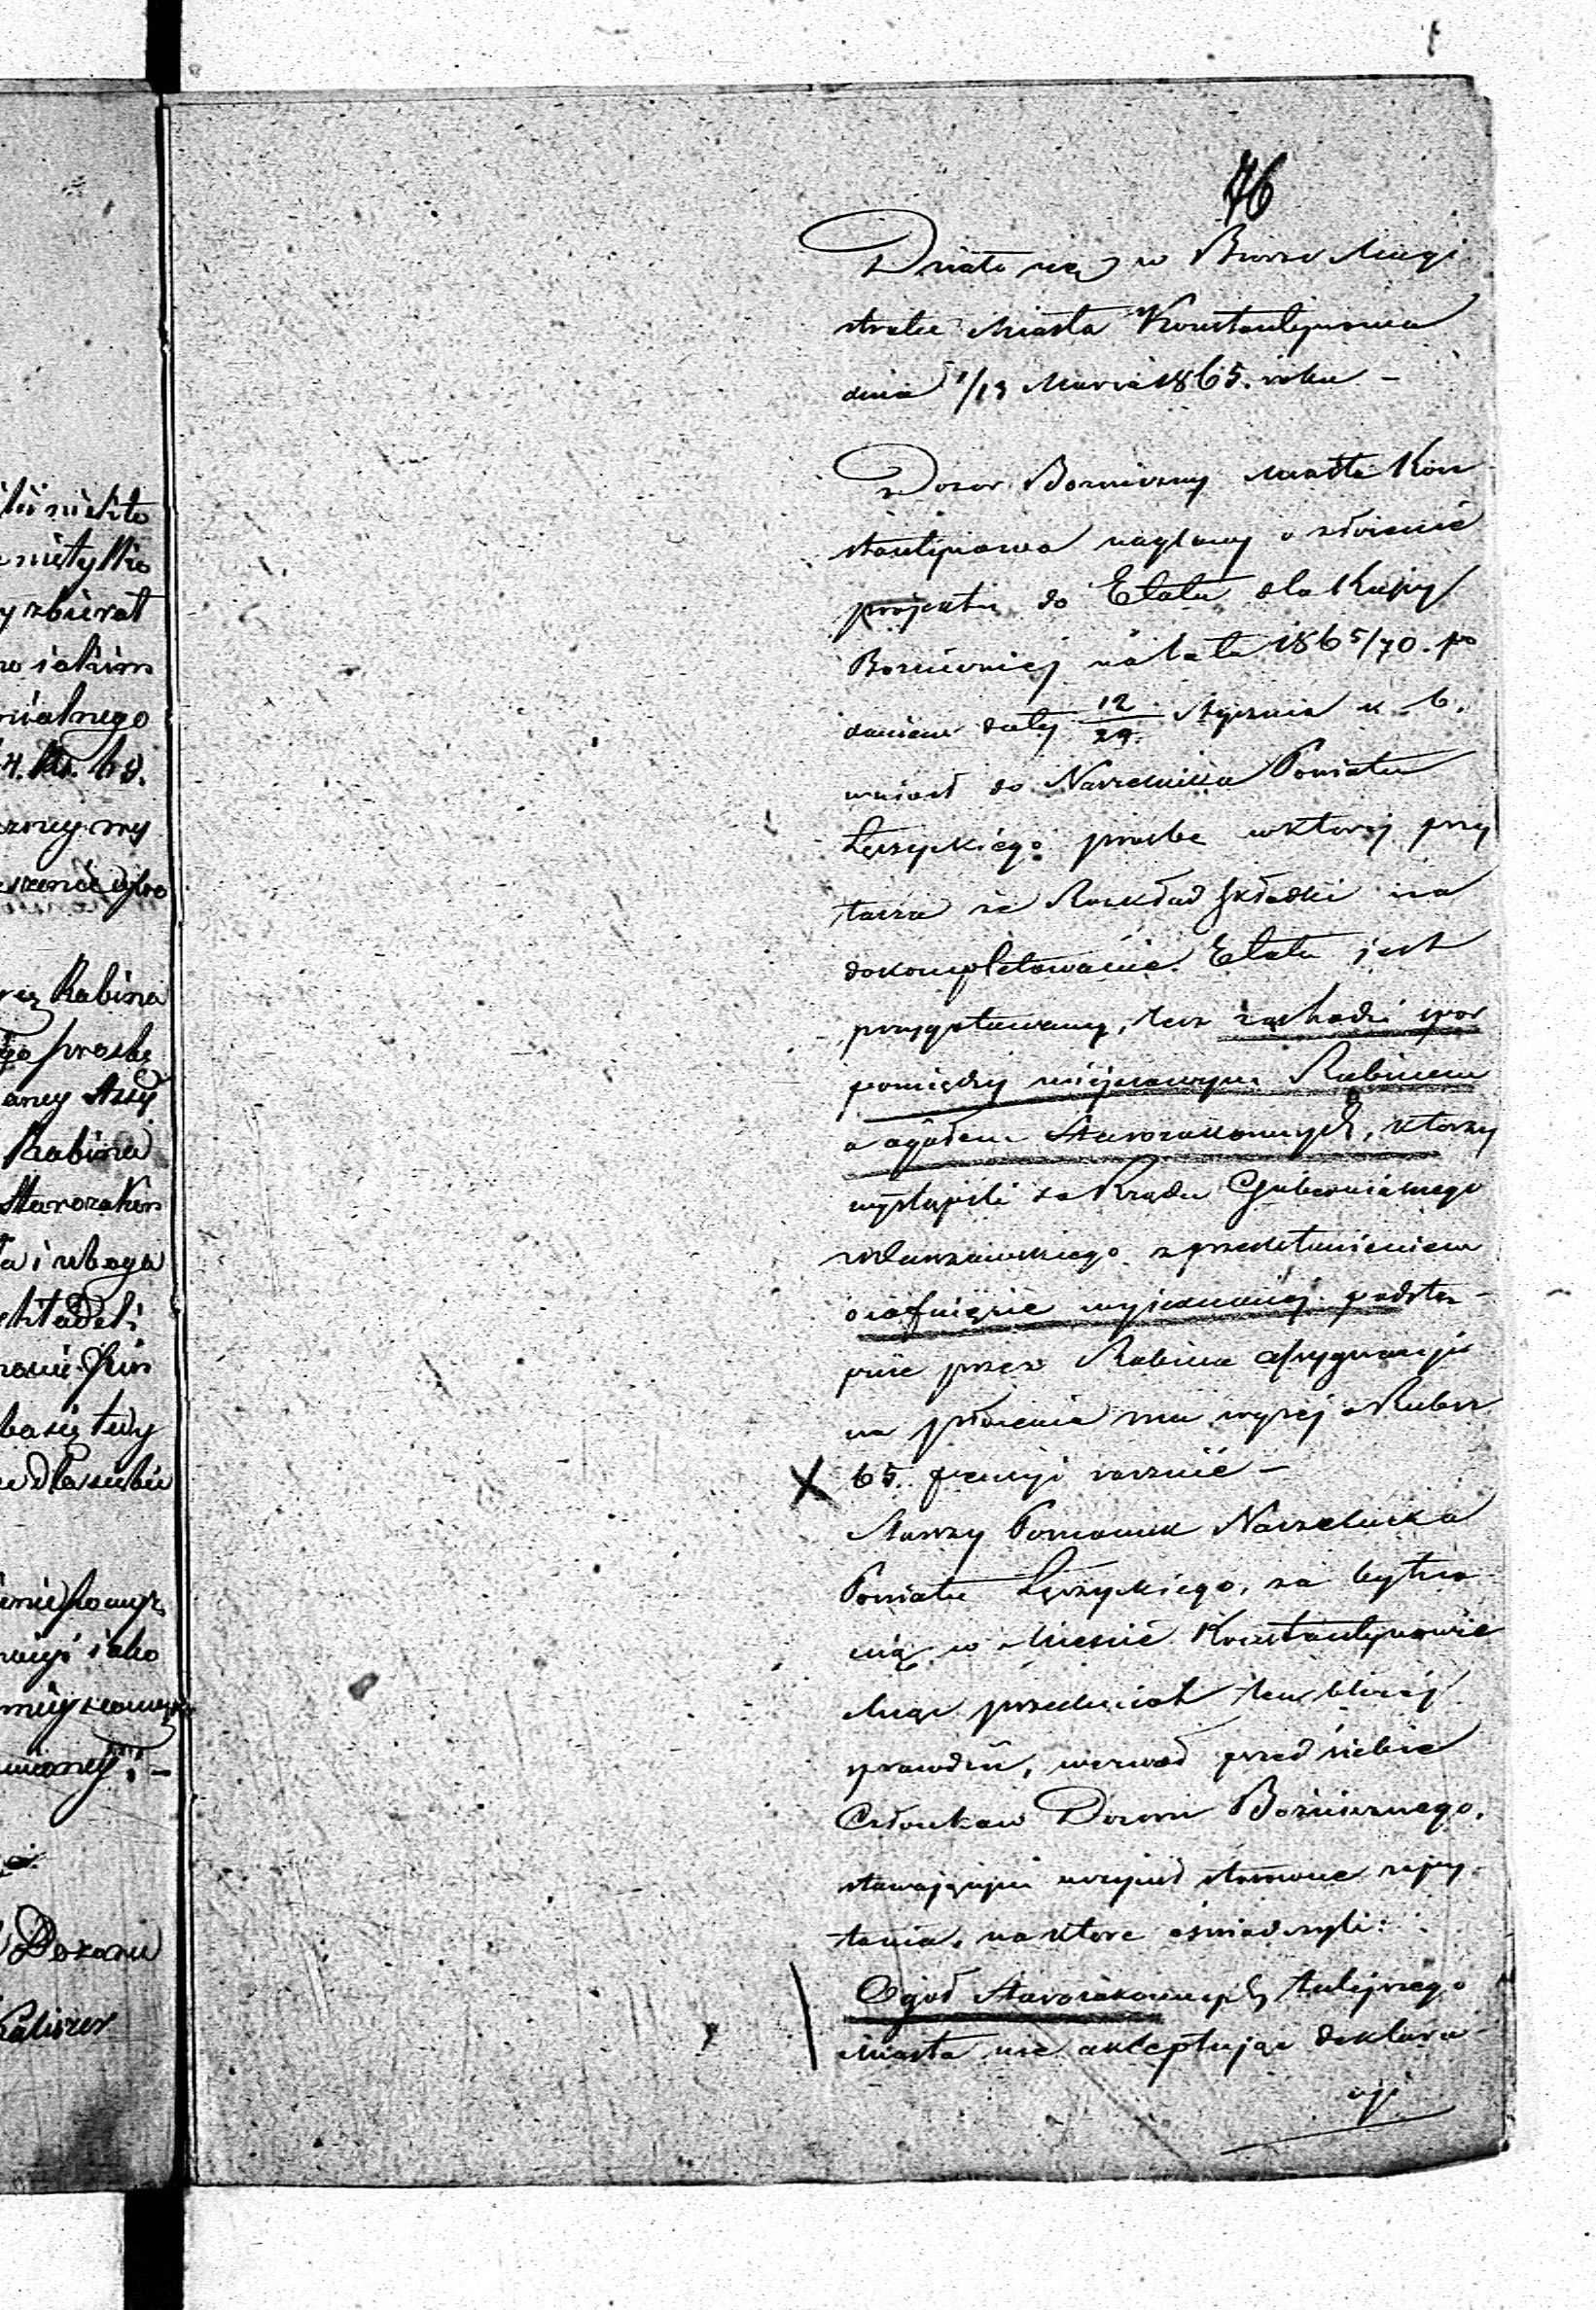 76
Działo się w Biórze Magi
stratu Miasta Konstantynowa
dnia 1/13 Marca 1865. roku –
Dozor Bozniczny Miasta Kon
stantynowa naglony o złożenie
projektu do Etatu dla Kassy
Bozniczniej na lata 1865/70. po
daniem daty 12/24. Stycznia r. b.
wniosł do Naczelnika Powiatu
Łęczyckiego prosbe wktorej przy
tacza że Rozkład składki na
dokompletowanie Etatu jest
przygotowany, lecz zachodzi spor
pomiędzy miejscowym Rabinem
a ogołem Starozakonnych, ktorzy
wystąpili do Rządu Gubernialnego
Warszawskiego z przedstawieniem
o cofnięcie wyjednanej podstę-
pnie przez Rabina assygnacji
na płacenia mu więcej o Rubsr
65. pensyi rocznie –
Starszy Pomocnik Naczelnika
Powiatu Łęczyckiego, za bytno
scią w Miescie Konstantynowie
chcąc przedmiot ten bliżej
sprawdzić, wezwał przed siebie
Członkow Dozoru Bożnicznego,
stawającym uczynił stosowne zapy-
tania, na ktore oświadczyli:
Ogoł Starozakonnych tutejszego
Miasta nie akceptując deklara-
cji
ili nikto
nietylko
y zbierał
wo iakim
nialnego
4. No. 69.
Rabina
go prosbę
aney Assy
Rabina
Starozakon
ta i uboga
kładki
ba się tedy
dla siebie
iako
Dozoru